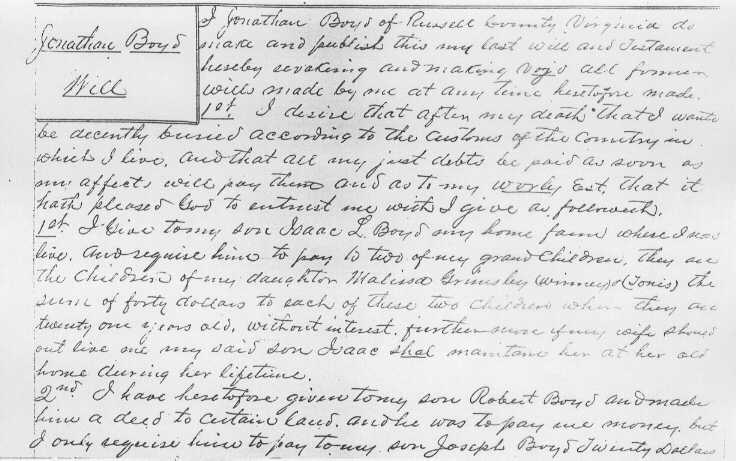 Jonathan Boyd
Will
I Jonathan Boyd of Russell County Virginia do
make and publish this my last will and Testament
hereby revoking and making Vojd all former
wills made by me at any time heretofore made.
1st. I desire that after my death that I wants
be decently buried according to the Customs of the Country in
which I live. and that all my just debts be paid as soon as
my affects will pay them and as to my worly Est, that it
hath pleased God to entrust me with I give as followeth.
1st. I Give to my son Isaac L. Boyd my home farm where I now
live. And require him to pay to two of my grand Children, they are
the Children of my daughter Malissa Grimsby (Winney) & (Tonis) the
sum of forty dollars to each of these two Children when they are
twenty one years old, without interest. furthermore if my wife should
out live me my said son Isaac shal maintane her at her old
home during her lifetime.
2nd I have heretofore given to my son Robert Boyd and made
him a deed to certain land. and he was to pay me money, but
I only require him to pay to my son Joseph Boyd Twenty Dollars